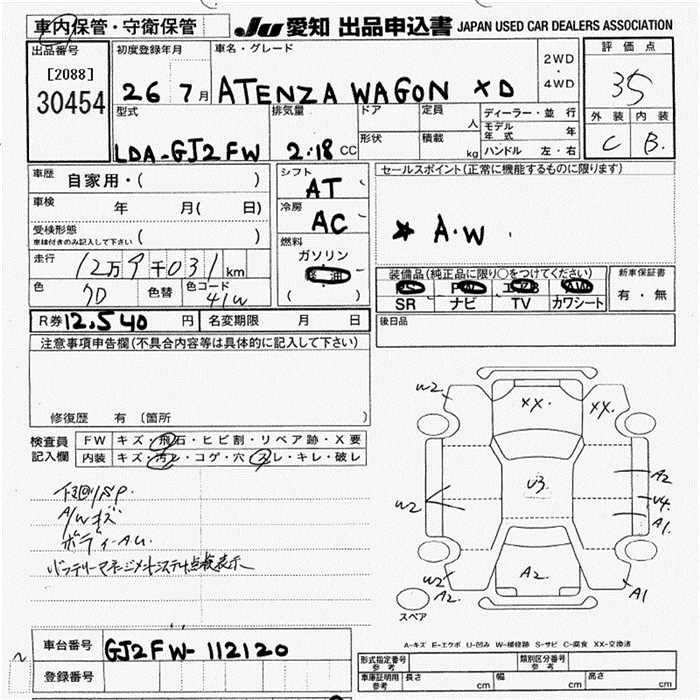 車内保管・守衛保管
JU 愛知 出品申込書 JAPAN USED CAR DEALERS ASSOCIATION
出品番号
[2088]
30454
初度登録年月
26 7月
車名・グレード
ATENZA WAGON XD
2WD
・
4WD
評価点
35
外装 内装
C B
型式
LDA-GJ2FW
排気量
2.18 CC
ドア
形状
定員
人
積載
kg
ディーラー・並行
モデル年式 年
ハンドル 左・右
車歴 自家用・( )
車検 年 月( 日)
受検形態
車検付きのみ記入して下さい ( )
走行 12万9千031km
色 色替 色コード
41W
シフト
AT
冷房
AC
燃料
ガソリン
軽油
( )
セールスポイント(正常に機能するものに限ります)
★ A・W
装備品(純正品に限り○をつけてください)
PS PW エアB AW
SR ナビ TV カワシート
新車保証書
有・無
R券 12,540 円 名変期限 月 日
後日品
注意事項申告欄(不具合内容等は具体的に記入して下さい)
修復歴 有 (箇所
検査員
記入欄
FW キズ・飛石・ヒビ割・リペア跡・X要
内装 キズ・汚レ・コゲ・穴・スレ・キレ・破レ
A/Wキズ
ボディーAU.
バッテリーマネージメントシステム点検表示
W2
XX
XX
W2
U3
A2
W4
A1
W2
A2
A2
A1
スペア
A-キズ E-エクボ U-凹み W-補修跡 S-サビ C-腐食 XX-交換済
車台番号 GJ2FW-112120
登録番号
形式指定番号
参考
類別区分番号
参考
車庫証明用
参考
長さ cm 幅 cm 高さ cm